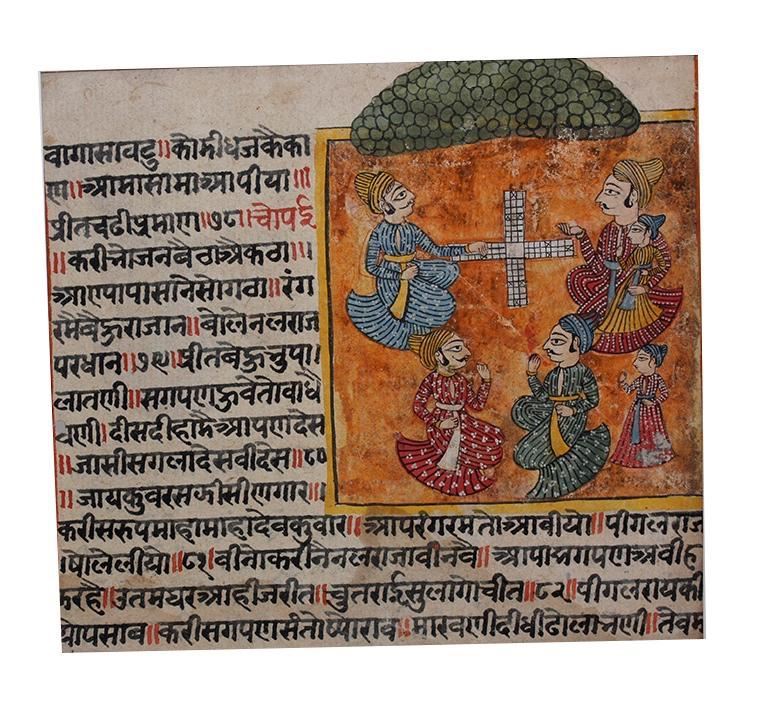 वागासावटु॥कामीधजकैका
ण॥आमासामाआपीया॥
प्रीतचढीप्रमाण॥७८॥चोपई
॥करीनोजनबैठाऐकठा॥
आएपापासनिसोगठा॥रंग
रमैबैहुराजान॥बोलेनलराज
परधान॥७९॥प्रीतबेहुचुपा
लातणी॥सगपणहुवेतोवाधै
घणी॥दीसदीहाडैआपणदेस
॥जासीसगलादेसवीदेस॥८०
॥जायकुवरसऊसीणगार॥
करीसरुपमाहामाहादेवकुवार॥आपरंगरमतोआवीयो॥पीगलराज
षोलेलीयो॥८१॥वीनाकरीनेनलराजावीनवै॥आपासगपणअवीह
करहै॥उतमघरआहीजरीत॥चुतराईसुलागोचीत॥८२॥पीगलरायकी
योपसाव॥करीसगपणसंतोष्योराव॥मारवणीदीधीढोलानणी॥तेवम